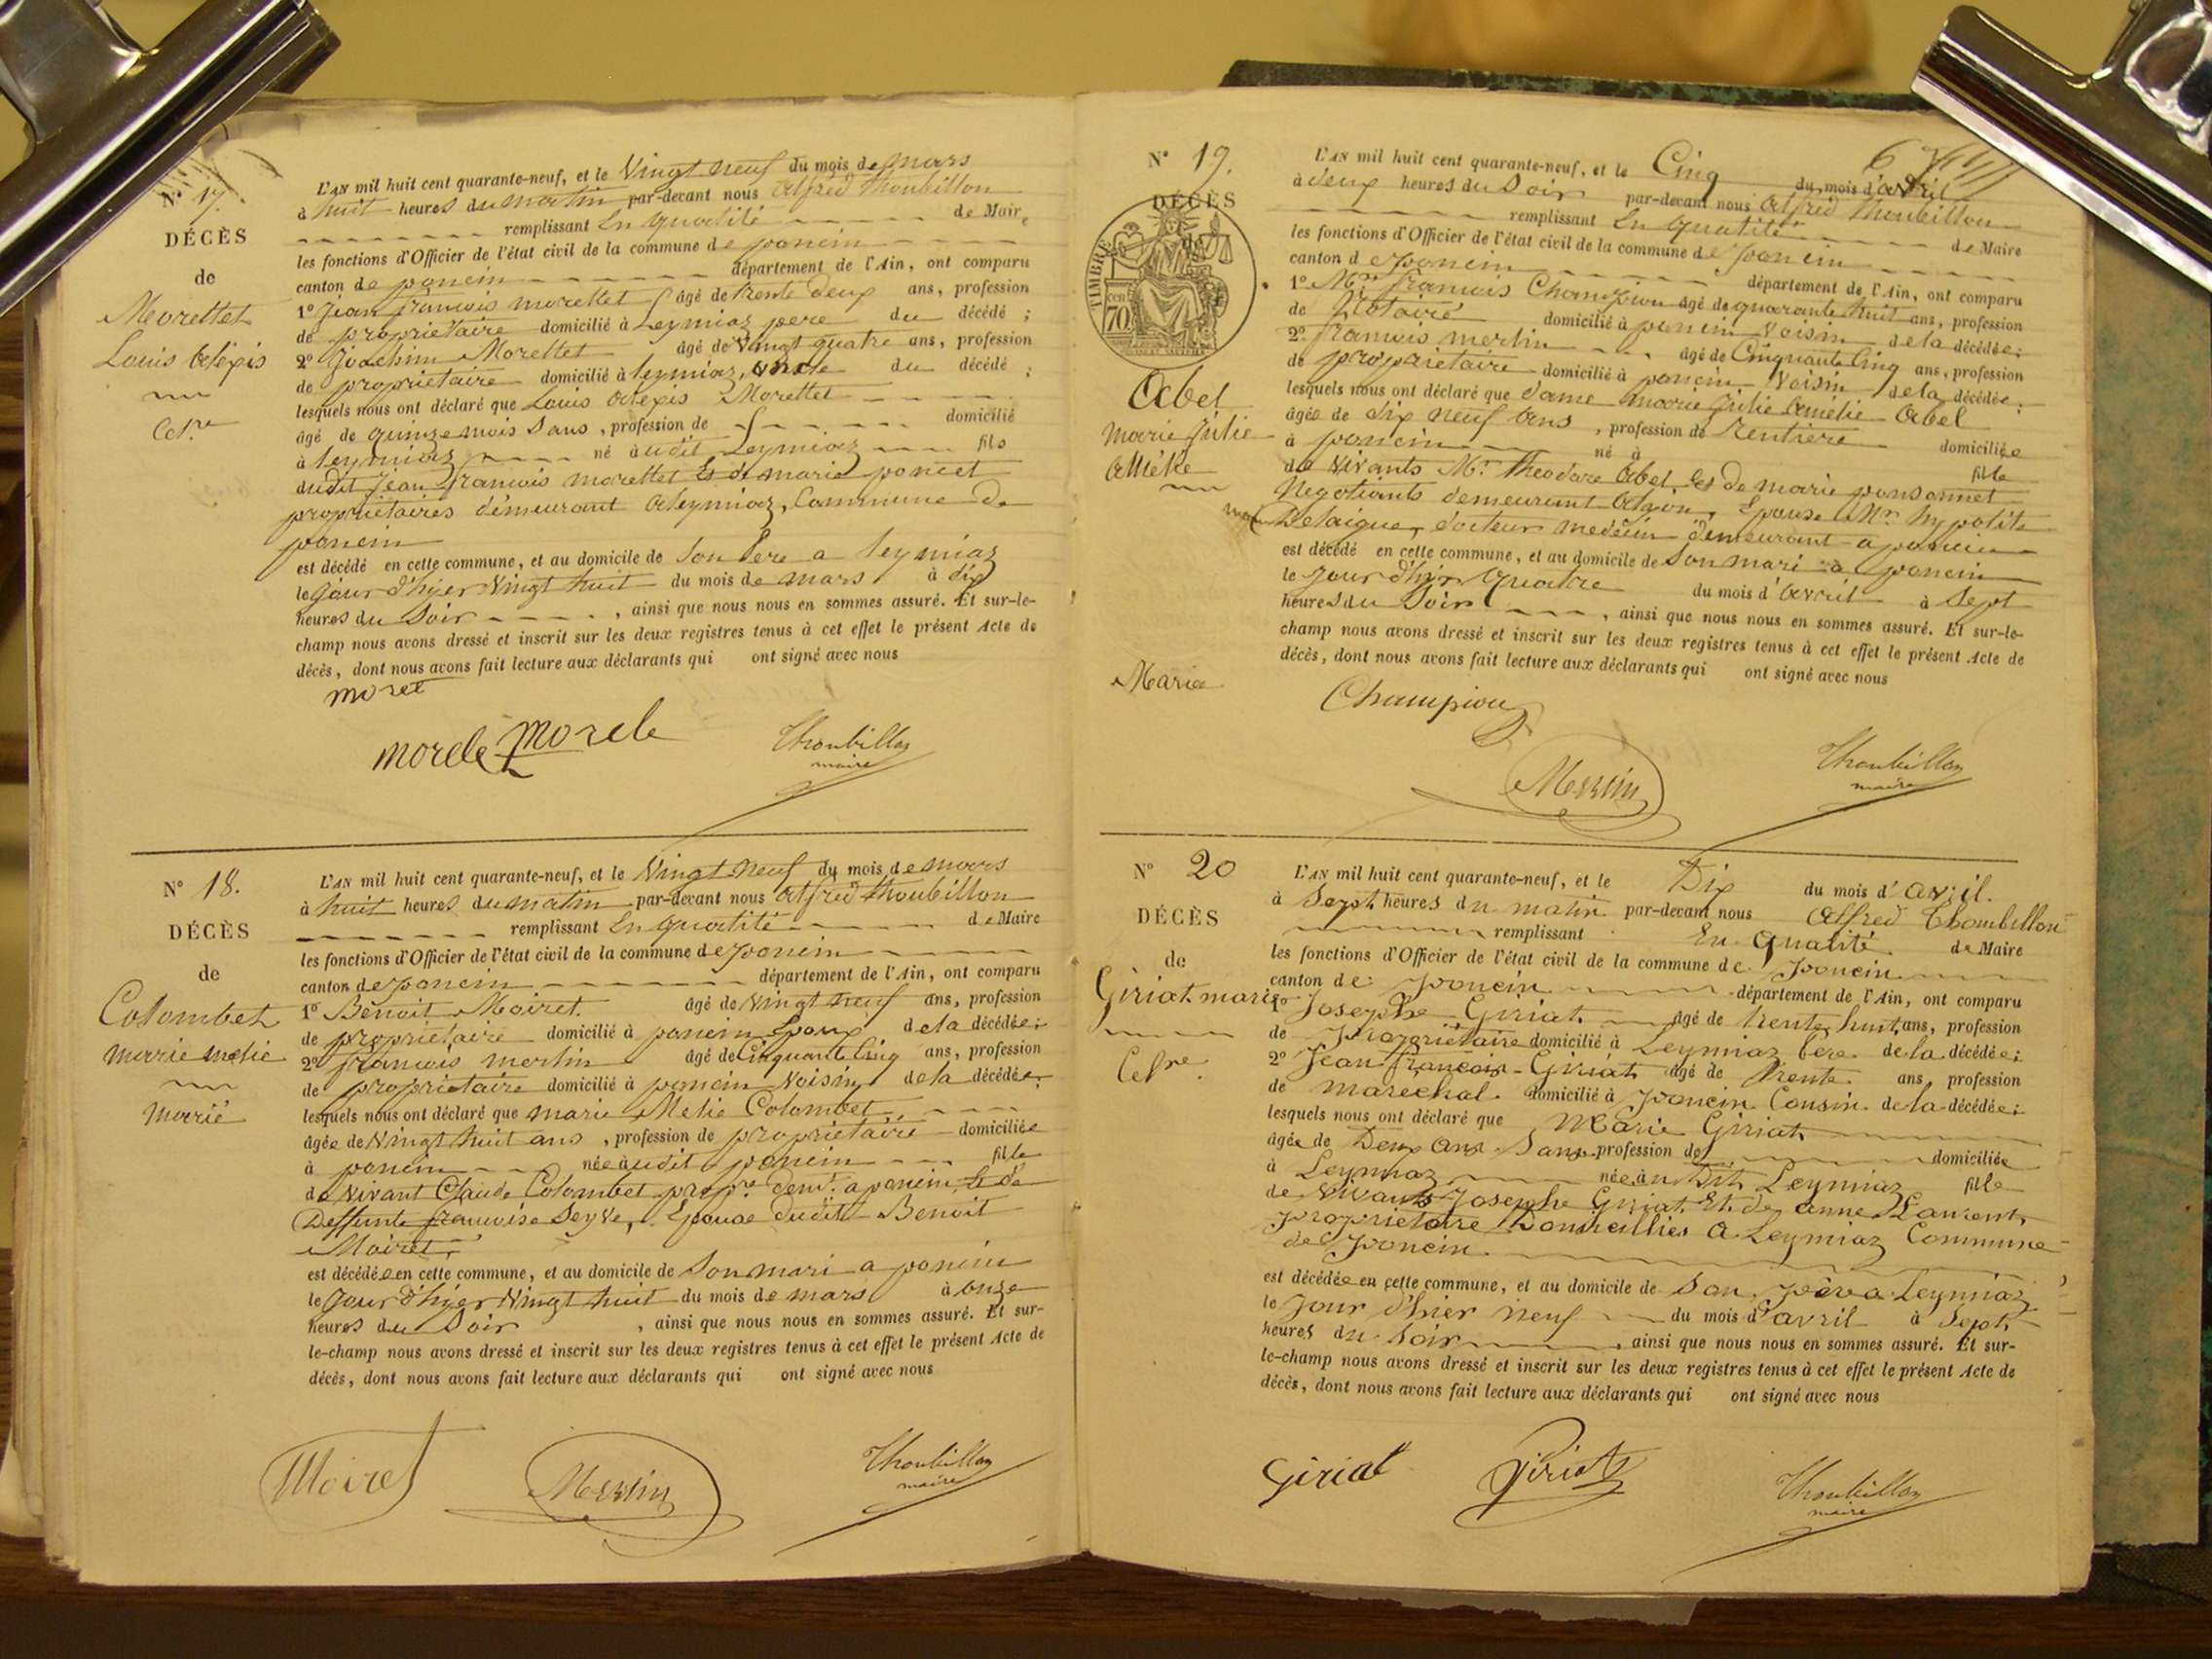 N° 17.
DÉCÈS
de
Morettet
Louis Alexis
Cel.re
L'AN mil huit cent quarante-neuf, et le Vingt neuf du mois de mars
à huit heures du matin par-devant nous Alfred Thoubillon
remplissant En qualité de Maire
les fonctions d'Officier de l'état civil de la commune de poncin
canton de poncin département de l'Ain, ont comparu
1° Jean francois morettet âgé de trente deux ans, profession
de propriétaire domicilié à Leymiaz pere du décédé ;
2° Joachim Morettet âgé de Vingt quatre ans, profession
de propriétaire domicilié à leymiaz, oncle du décédé ;
lesquels nous ont déclaré que Louis Alexis Morettet
âgé de quinze mois Sans, profession de domicilié
à leymiaz né audit Leymiaz fils
dudit Jean francois morettet Et de marie poncet
propriétaires demeurant a leymiaz, Commune de
poncin
est décédé en cette commune, et au domicile de Son Pere a leymiaz
le Jour d'hyer Vingt huit du mois de mars à dix
heures du Soir, ainsi que nous nous en sommes assuré. Et sur-le-
champ nous avons dressé et inscrit sur les deux registres tenus à cet effet le présent Acte de
décès, dont nous avons fait lecture aux déclarants qui ont signé avec nous
moret
morele morele Thoubillon
maire
N° 18.
DÉCÈS
de
Colombet
marie melie
marié
L'AN mil huit cent quarante-neuf, et le Vingt neuf du mois de mars
à huit heures du matin par-devant nous Alfred thoubillon
remplissant En qualité de Maire
les fonctions d'Officier de l'état civil de la commune de poncin
canton de poncin département de l'Ain, ont comparu
1° Benoit Moiret. âgé de Vingt neuf ans, profession
de propriétaire domicilié à poncin Epoux de la décédée;
2° francois merlin âgé de Cinquante Cinq ans, profession
de propriétaire domicilié à poncin Voisin de la décédée;
lesquels nous ont déclaré que marie Melie Colombet
âgée de Vingt huit ans, profession de propriétaire domiciliée
à poncin née audit poncin fille
de Vivant Claude Colombet prop.re dem.t a poncin, Et de
Deffunte francoise Seyve, Epouse dudit Benoit
Moiret,
est décédée en cette commune, et au domicile de Son mari a poncin
le Jour d'hyer Vingt huit du mois de mars à onze
heures du Soir, ainsi que nous nous en sommes assuré. Et sur-
le-champ nous avons dressé et inscrit sur les deux registres tenus à cet effet le présent Acte de
décès, dont nous avons fait lecture aux déclarants qui ont signé avec nous
Moiret Merlin Thoubillon
maire
N° 19.
DÉCÈS
de
TIMBRE
70
Abel
Marie Julie
Amélie
Mariée
L'AN mil huit cent quarante-neuf, et le Cinq du mois d'Avril
à deux heures du Soir par-devant nous Alfred thoubillon
remplissant En qualité de Maire
les fonctions d'Officier de l'état civil de la commune de poncin
canton de poncin département de l'Ain, ont comparu
1° M.r francois Champion âgé de quarante huit ans, profession
de Notaire domicilié à poncin Voisin de la décédée;
2° francois merlin âgé de Cinquante Cinq ans, profession
de propriétaire domicilié à poncin Voisin de la décédée;
lesquels nous ont déclaré que dame marie Julie Amélie Abel
âgée de dix neuf ans, profession de Rentière domiciliée
à poncin né à fille
de Vivants M.r Theodore Abel, Et de marie ponsonnet
Negotiants demeurant a lyon, Epouse M.r hypolite
Delaigue, docteur medecin demeurant a poncin
est décédé en cette commune, et au domicile de Son mari a poncin
le Jour d'hier Quatre du mois d'Avril à Sept
heures du Soir, ainsi que nous nous en sommes assuré. Et sur-le-
champ nous avons dressé et inscrit sur les deux registres tenus à cet effet le présent Acte de
décès, dont nous avons fait lecture aux déclarants qui ont signé avec nous
Champion
Merlin Thoubillon
maire
N° 20
DÉCÈS
de
Giriat marie
Cel.re
L'AN mil huit cent quarante-neuf, et le Dix du mois d'avril.
à Sept heures du matin par-devant nous Alfred Thoubillon
remplissant En qualité de Maire
les fonctions d'Officier de l'état civil de la commune de poncin
canton de poncin département de l'Ain, ont comparu
1° Josephe Giriat âgé de trente huit ans, profession
de propriétaire domicilié à Leymiaz Pere de la décédée;
2° Jean francois Giriat âgé de Trente ans, profession
de marechal domicilié à poncin Cousin de la décédée;
lesquels nous ont déclaré que Marie Giriat
âgée de Deux ans Sans profession de domiciliée
à Leymiaz née au Dit Leymiaz fille
de Vivants Josephe Giriat Et de anne Laurent
propriétaire Domicilliés a Leymiaz Commune
de poncin
est décédée en cette commune, et au domicile de Son père a Leymiaz
le jour d'hier neuf du mois d'avril à Sept
heures du Soir, ainsi que nous nous en sommes assuré. Et sur-
le-champ nous avons dressé et inscrit sur les deux registres tenus à cet effet le présent Acte de
décès, dont nous avons fait lecture aux déclarants qui ont signé avec nous
Giriat Giriat Thoubillon
maire